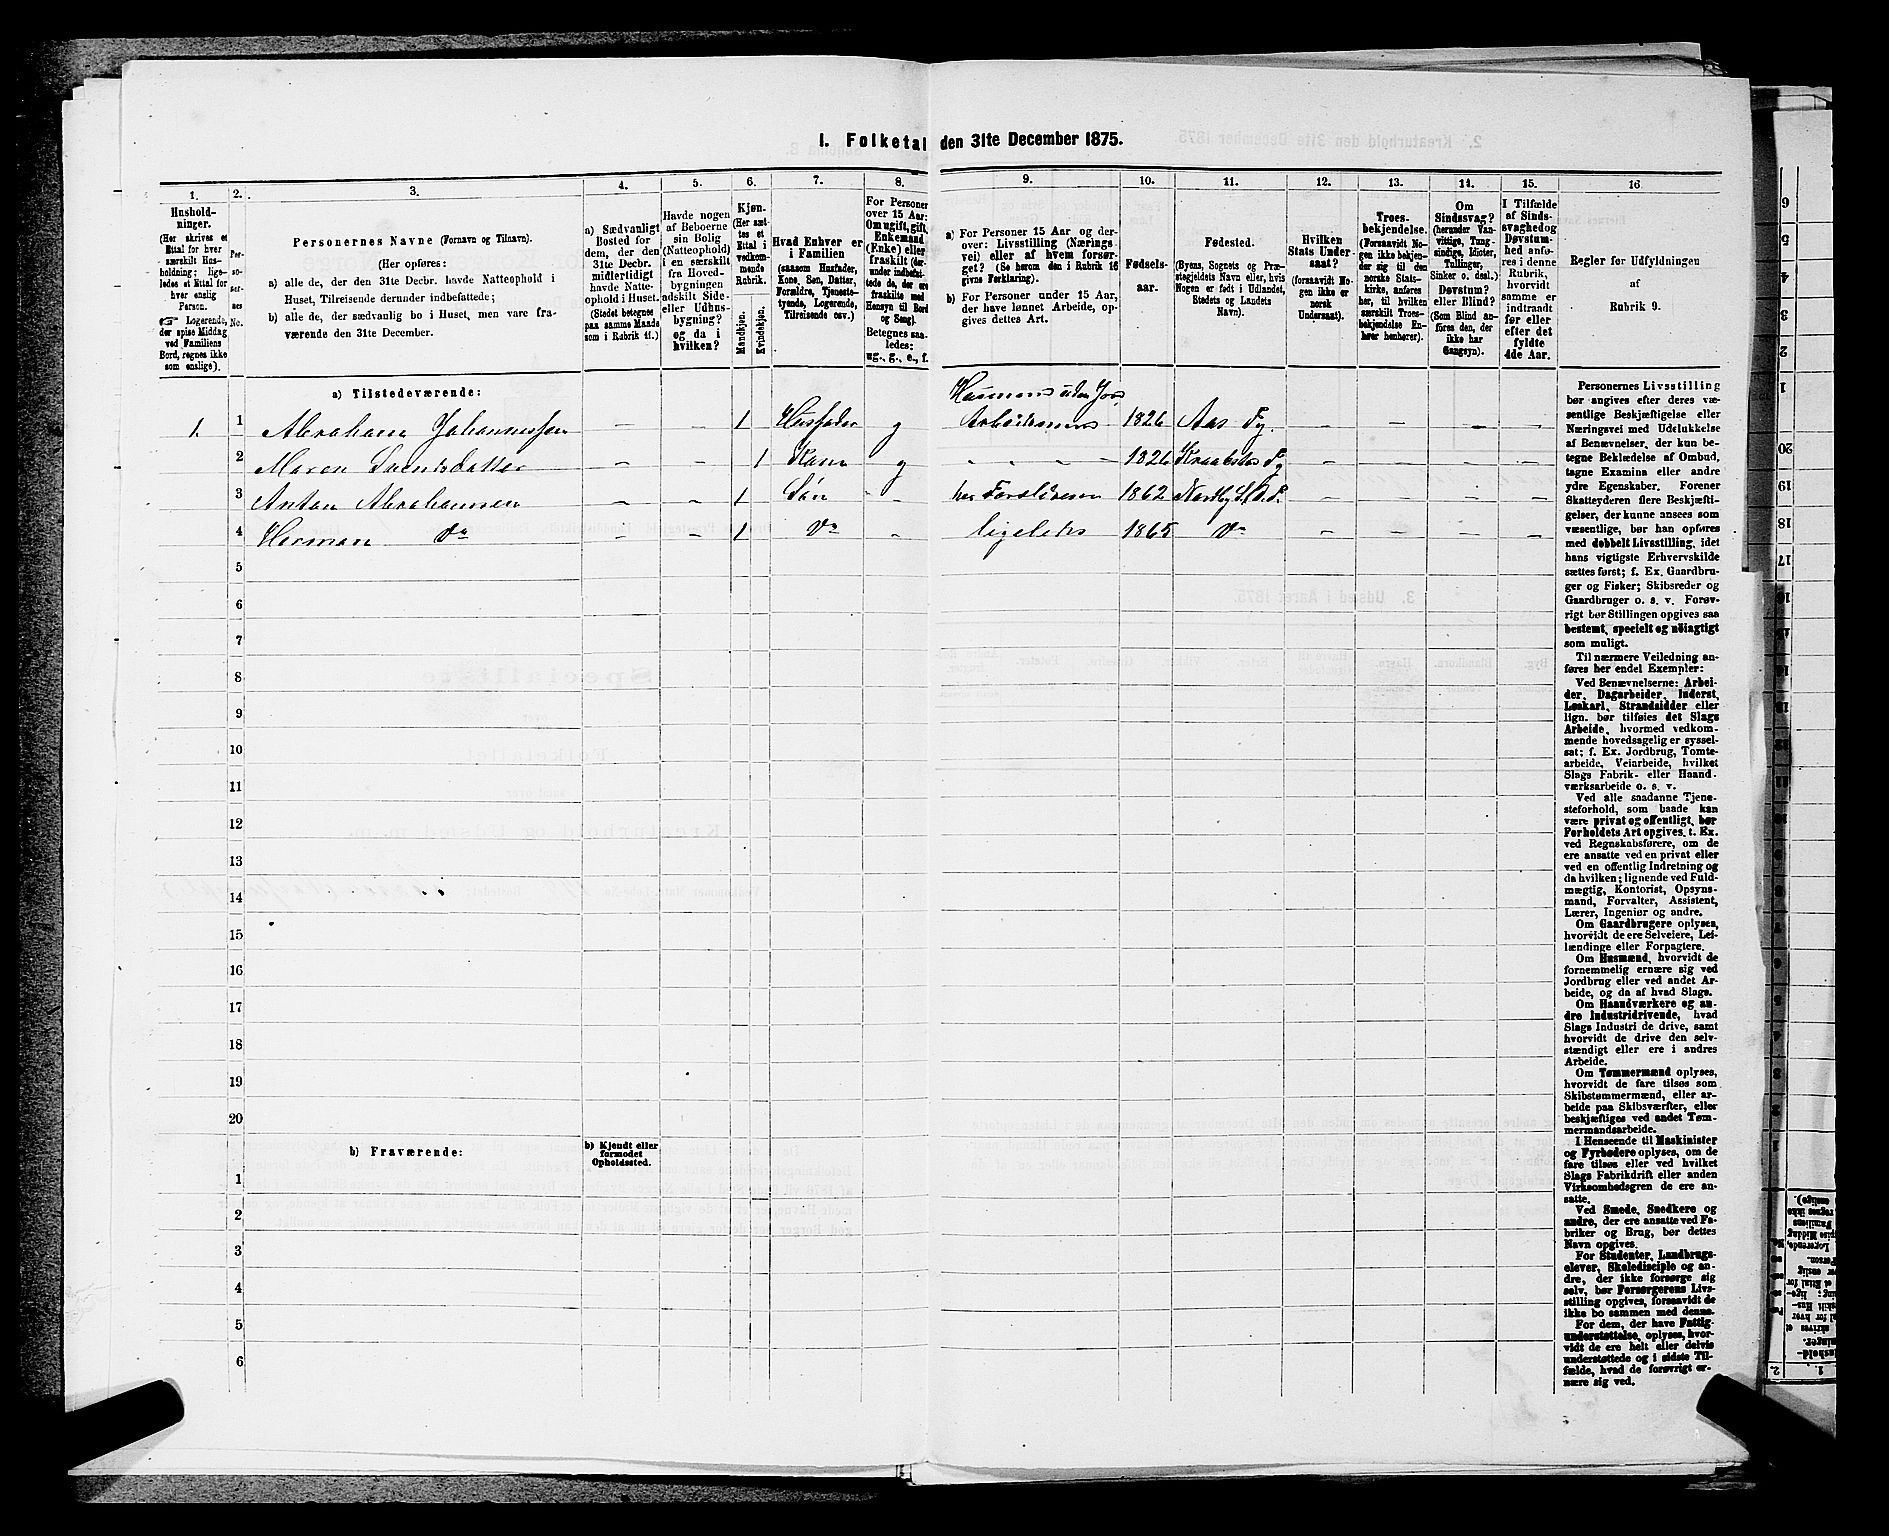 1. Folketal den 31te December 1875.
1. 2. 3. 4. 5. 6. 7. 8. 9. 10. 11. 12. 13. 14. 15. 16
Hushold-
ninger.
(Her skrives et
Ettal for hver
særskilt Hus-
holdning; lige-
ledes et Ettal for
hver enslig
Person.
☞ Logerende,
der spise Middag
ved Familiens
Bord, regnes ikke
som enslige).
Per-
so-
ner-
nes
No.
Personernes Navne (Fornavn og Tilnavn).
(Her opføres:
a) alle de, der den 31te Decbr. havde Natteophold i
Huset, Tilreisende derunder indbefattede;
b) alle de, der sædvanlig bo i Huset, men vare fra-
værende den 31te December.
a) Sædvanligt
Bosted for
dem, der den
31te Decbr.
midlertidigt
havde Natte-
ophold i Huset.
(Stedet betegnes
paa samme Maade
som i Rubrik 11.)
Havde nogen
af Beboerne
sin Bolig
(Natteophold)
i en særskilt
fra Hoved-
bygningen
adskilt Side-
eller Udhus-
bygning?
og da i
hvilken?
Kjøn.
(Her sæt-
tes et
Ettal i
vedkom-
mende
Rubrik.
Mandkjøn.
Kvindekjøn.
Hvad Enhver er
i Familien
(saasom Husfader,
Kone, Søn, Datter,
Forældre, Tjeneste-
tyende, Logerende,
Tilreisende osv.)
For Personer
over 15 Aar:
Om ugift, gift,
Enkemand
(Enke) eller
fraskilt (der-
under indbefat-
tede de, der ere
fraskilte med
Hensyn til Bord
og Seng).
Betegnes saa-
ledes:
ug., g., e., f.
a) For Personer 15 Aar og der-
over: Livsstilling (Nærings-
vei) eller af hvem forsør-
get? (Se herom den i Rubrik 16
givne Forklaring).
b) For Personer under 15 Aar,
der have lønnet Arbeide, op-
gives dettes Art.
Fødsels-
aar.
Fødested.
(Byens, Sognets og Præ-
stegjeldets Navn eller, hvis
Nogen er født i Udlandet,
Stedets og Landets
Navn).
Hvilken
Stats Under-
saat?
(foraavidt No-
gen ikke er
norsk
Undersaat).
Troes-
bekjendelse.
(Forsaavidt No-
gen ikke bekjen-
der sig til den
norske Stats-
kirke, anføres
her, til hvilken
særskilt Troes-
bekjendelse En-
hver henhører).
Om
Sindssvag?
(herunder Van-
vittige, Tung-
sindige, Idioter,
Tullinger,
Sinker o. desl.)
Døvstum?
eller Blind?
(Som Blind an-
føres den, der
ikke har
Gangsyn).
I Tilfælde
af Sinds-
svaghed og
Døvstum-
hed anfø-
res i denne
Rubrik,
hvorvidt
samme er
indtraadt
før eller
efter det
fyldte
4de Aar.
Regler for Udfyldningen
af
Rubrik 9.
a) Tilstedeværende:
Husmand uden Jord,
1. 1 Abraham Johannessen – – 1 Husfader g Arbeidsmand 1826 Aas Pg. – – – –
2 Maren Svendsdatter – – 1 Kone g - - - - 1826 Kraakstad Pg – – – –
3 Anton Abrahamsen – – 1 Søn – har Forsikresen 1862 Nordby S. D. P. – – – –
4 Herman do – – 1 do – ligeledes 1865 do – – – –
5
6
7
8
9
10
11
12
13
14
15
16
17
18
19
20
b) Fraværende:
b) Kjendt eller
formodet
Opholdssted.
1
2
3
4
5
6
Personernes Livsstilling
bør angives efter deres væ-
sentlige Beskjæftigelse eller
Næringsvei med Udelukkelse
af Benævnelser, der kun be-
tegne Beklædelse af Ombud,
tagne Examina eller andre
ydre Egenskaber. Forener
Skatteyderen flere Beskjæfti-
gelser, der kunne ansees som
væsentlige, bør han opføres
med dobbelt Livsstilling, idet
hans vigtigste Erhvervskilde
sættes først; f. Ex. Gaardbru-
ger og Fisker; Skibsreder og
Gaardbruger o. s. v. Forøv-
rigt bør Stillingen opgives saa
bestemt, specielt og nøiagtigt
som muligt.
Til nærmere Veiledning an-
føres her endel Exempler:
Ved Benævnelserne: Arbei-
der, Dagarbeider, Inderst,
Løskarl, Strandsidder eller
lign. bør tilføies det Slags
Arbeide, hvormed vedkom-
mende hovedsagelig er syssel-
sat; f. Ex. Jordbrug, Tomte-
arbeide, Veiarbeide, hvilket
Slags Fabrik- eller Haand-
værksarbeide o. s. v.
Ved alle saadanne Tjene-
steforhold, som baade kan
være privat og offentligt, bør
Forholdets Art opgives, t. Ex.
ved Regnskabsførere, om de
ere ansatte ved en privat eller
ved en offentlig Indretning og
da hvilken; lignende ved Fuld-
mægtig, Kontorist, Opsyns-
mand, Forvalter, Assistent,
Lærer, Ingeniør og andre.
Om Gaardbrugere oplyses,
hvorvidt de ere Selveiere, Lei-
lændinge eller Forpagtere.
Om Husmænd, hvorvidt de
fornemmelig ernære sig ved
Jordbrug eller ved andet Ar-
beide, og da af hvad Slags.
Om Haandværkere og an-
dre Industridrivende, hvad
Slags Industri de drive, samt
hvorvidt de drive den selv-
stændigt eller ere i andres
Arbeide.
Om Tømmermænd oplyses,
hvorvidt de fare tilsøs som
Skibstømmermænd, eller ar-
beide paa Skibsværfter, eller
beskjæftiges ved andet Tøm-
mermandsarbeide.
I Henseende til Maskinister
og Fyrbødere oplyses, om de
fare tilsøs eller ved hvilket
Slags Fabrikdrift eller anden
Virksomhedsgren de ere an-
satte.
Ved Smede, Snedkere og
andre, der ere ansatte ved Fa-
briker og Brug, bør dettes
Navn opgives.
For Studenter, Landbrugs-
elever, Skoledisciple og an-
dre, der ikke forsørge sig
selv, bør Forsørgerens Livs-
stilling opgives, forsaavidt de
ikke bo sammen med denne.
For dem, der have Fattig-
understøttelse, oplyses, hvor-
vidt de ere helt eller delvis
understøttede og i sidste Til-
fælde, hvad de forøvrigt er-
nære sig ved.